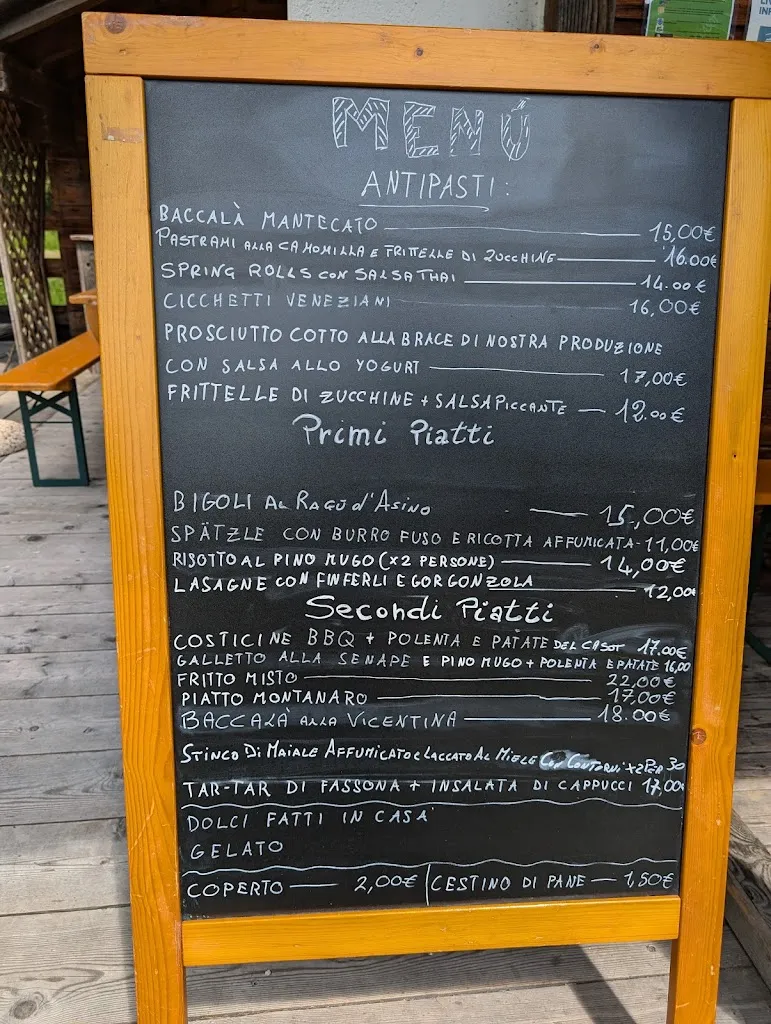 MENÚ
ANTIPASTI:
BACCALÀ MANTECATO 15,00€
PASTRAMI ALLA CAMOMILLA E FRITTELLE DI ZUCCHINE 16.00€
SPRING ROLLS CON SALSA THAI 14.00€
CICCHETTI VENEZIANI 16,00€
PROSCIUTTO COTTO ALLA BRACE DI NOSTRA PRODUZIONE
CON SALSA ALLO YOGURT 17,00€
FRITTELLE DI ZUCCHINE + SALSA PICCANTE 12.00€
Primi Piatti
BIGOLI AL RAGÙ d'ASINO 15,00€
SPÄTZLE CON BURRO FUSO E RICOTTA AFFUMICATA - 11,00€
RISOTTO AL PINO MUGO (x2 PERSONE) 14,00€
LASAGNE CON FINFERLI E GORGONZOLA 12,00€
Secondi Piatti
COSTICINE BBQ + POLENTA E PATATE DEL CASOT 17.00€
GALLETTO ALLA SENAPE E PINO MUGO + POLENTA E PATATE 16,00
FRITTO MISTO 22,00€
PIATTO MONTANARO 17,00€
BACCALÀ ALLA VICENTINA 18.00€
STINCO DI MAIALE AFFUMICATO E LACCATO AL MIELE CON CONTORNI x2 PER 30
TAR-TAR DI FASSONA + INSALATA DI CAPPUCCI 17,00€
DOLCI FATTI IN CASA
GELATO
COPERTO 2,00€ | CESTINO DI PANE 1,50€